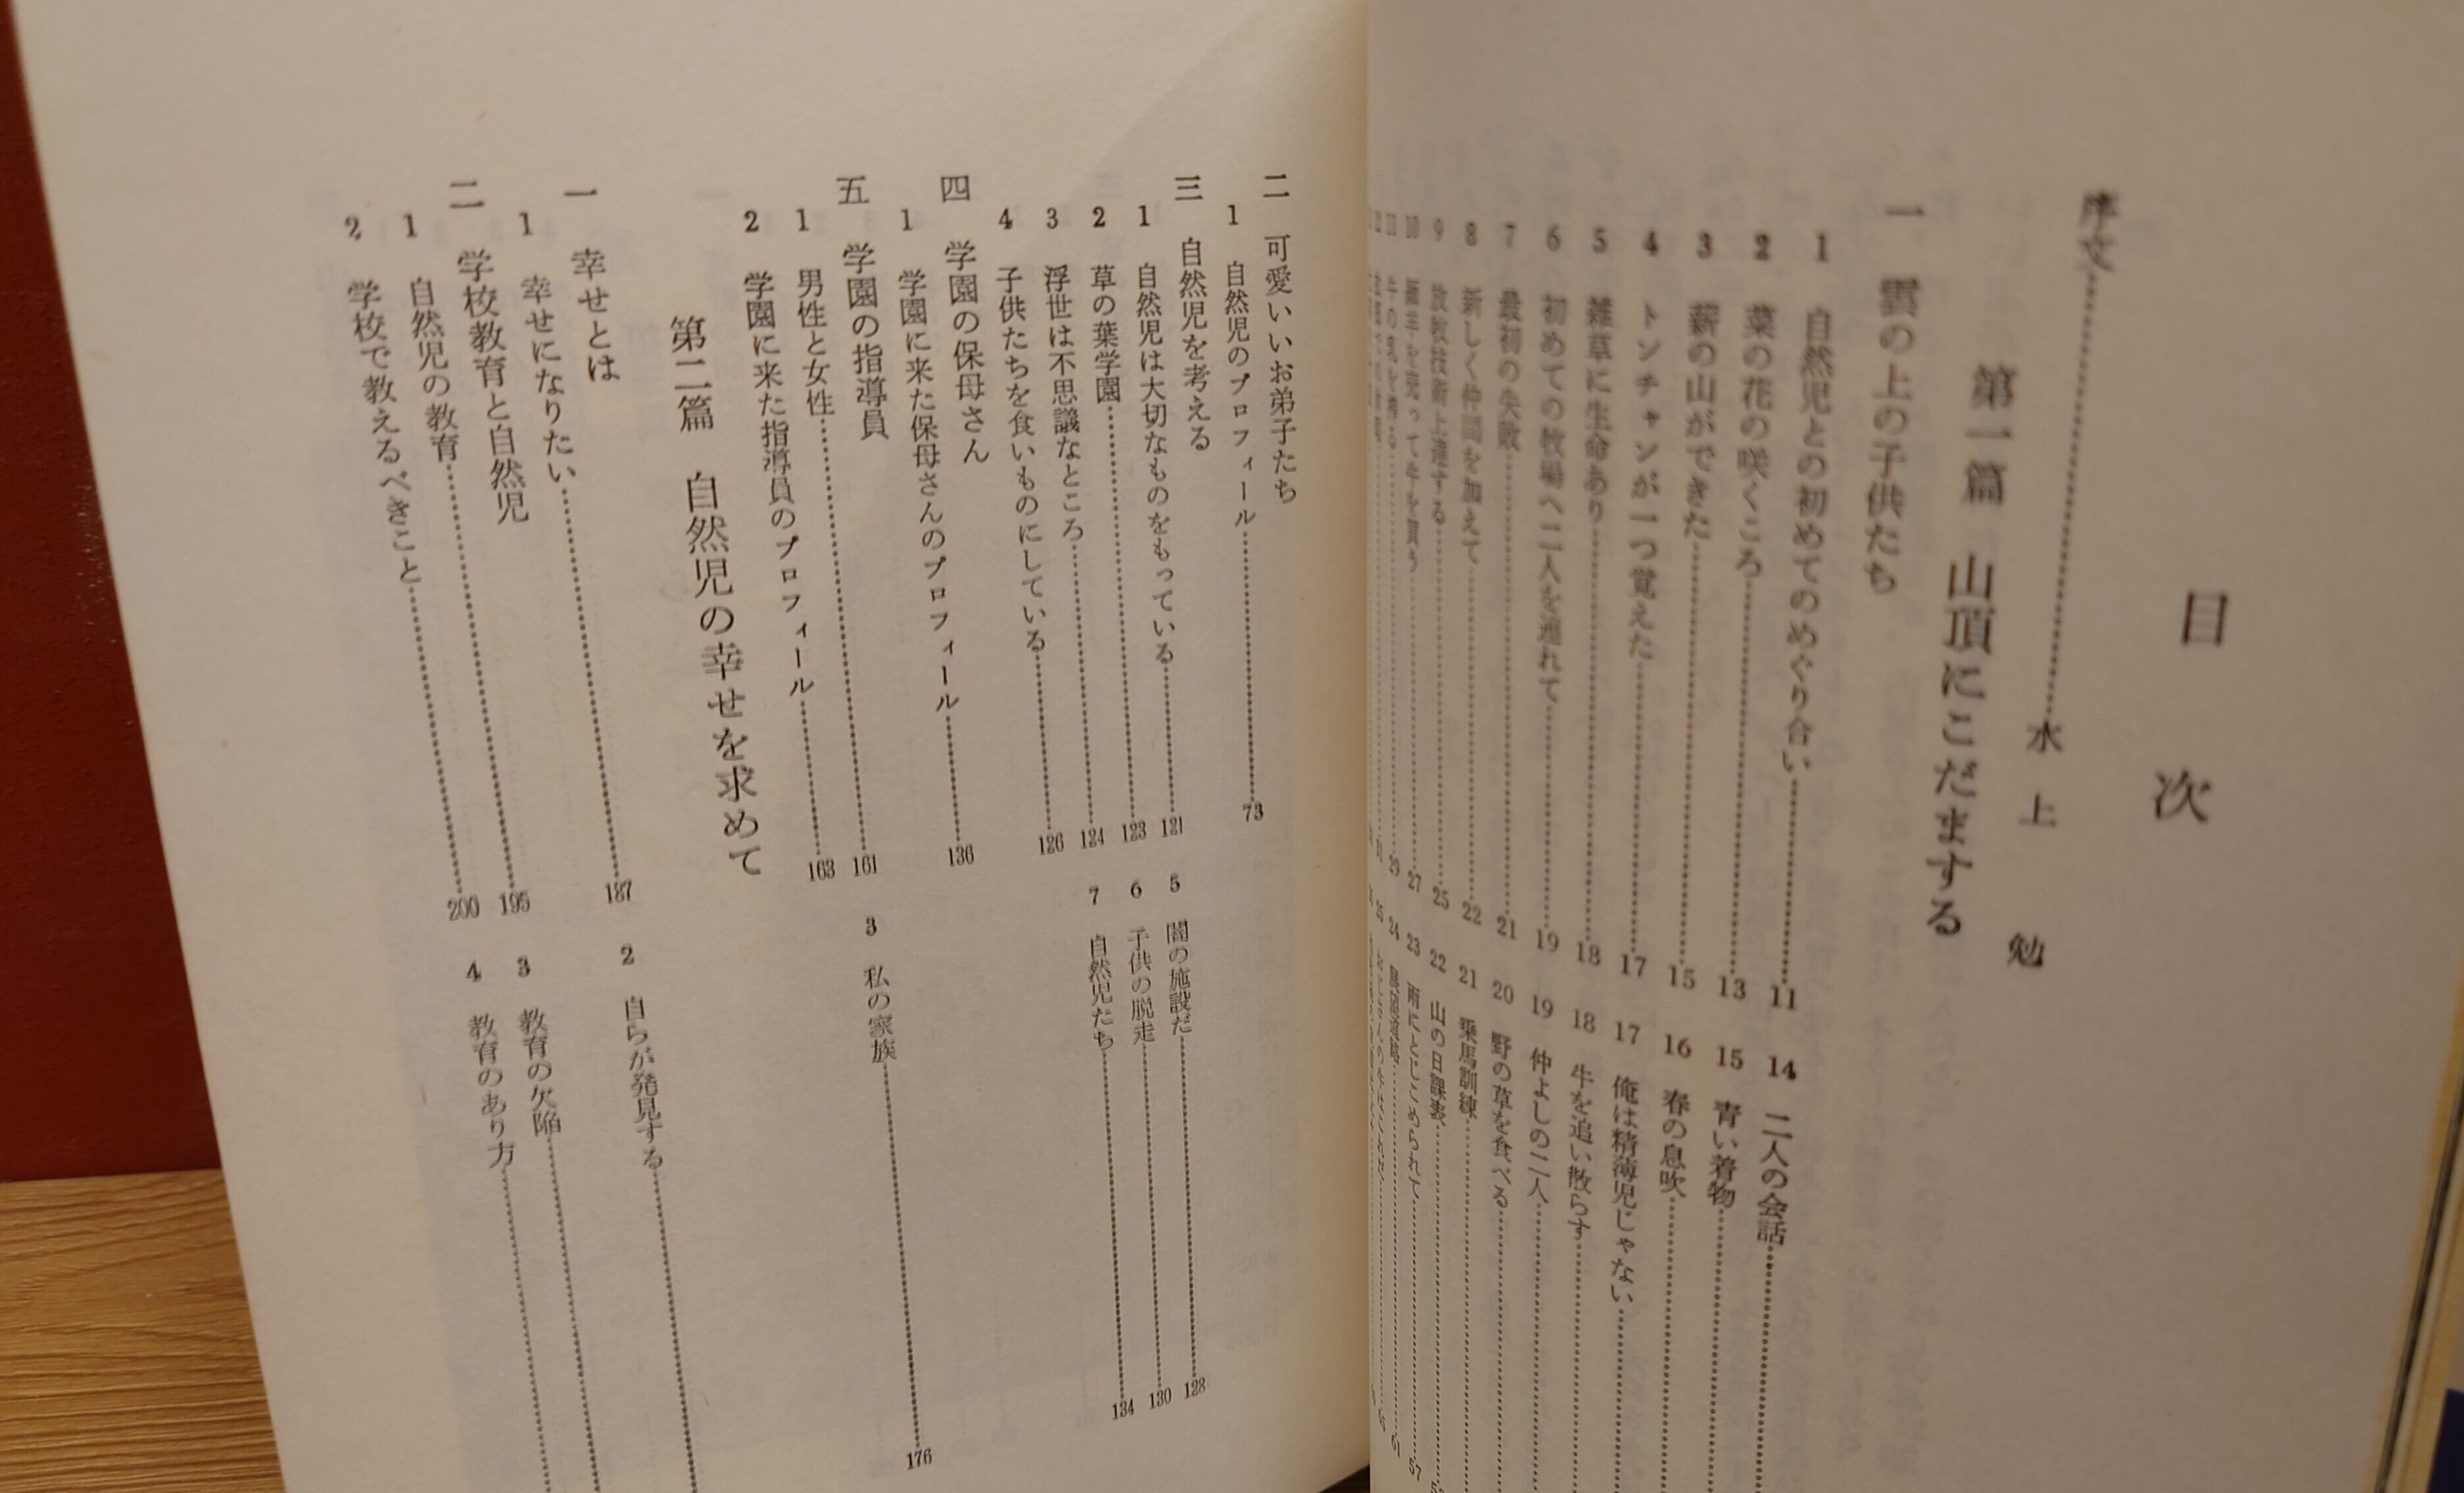 目次
序文……水上 勉
第一篇 山頂にこだまする
一 雲の上の子供たち
1 自然児との初めてのめぐり合い……11
2 菜の花の咲くころ……13
3 薪の山ができた……15
4 トンチャンが一つ覚えた……17
5 雑草に生命あり……18
6 初めての牧場へ二人を連れて……19
7 最初の失敗……21
8 新しく仲間を加えて……22
9 放牧技術上達する……25
10 緬羊を売って牛を買う……27
11……29
14 二人の会話
15 青い着物
16 春の息吹
17 俺は精薄児じゃない
18 牛を追い散らす
19 仲よしの二人
20 野の草を食べる
21 乗馬訓練
22 山の日課表
23 雨にとじこめられて……57
24……61
二 可愛いいお弟子たち
1 自然児のプロフィール……73
三 自然児を考える
1 自然児は大切なものをもっている……121
2 草の葉学園……123
3 浮世は不思議なところ……124
4 子供たちを食いものにしている……126
5 闇の施設だ……128
6 子供の脱走……130
7 自然児たち……134
四 学園の保母さん
1 学園に来た保母さんのプロフィール……136
五 学園の指導員
1 男性と女性……161
2 学園に来た指導員のプロフィール……163
3 私の家族……176
第二篇 自然児の幸せを求めて
一 幸せとは
1 幸せになりたい……187
2 自らが発見する
二 学校教育と自然児
1 自然児の教育……195
2 学校で教えるべきこと……200
3 教育の欠陥
4 教育のあり方